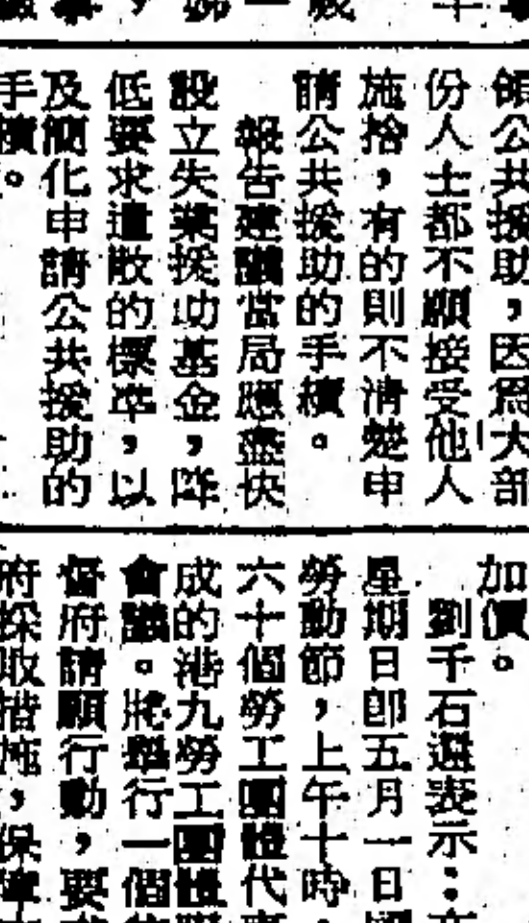 領公共援助，因為大部
份人士都不願接受他人
施捨，有的則不清楚申
請公共援助的手續。
報告建議當局應盡快
設立失業援助基金，降
低要求遣散的標準，以
及簡化申請公共援助的
手續。
加價。
劉千石還表示：
星期日即五月一日
勞動節，上午十時，
六十個勞工團體代
成的港九勞工團體
會議。將舉行一個
督府請願行動，要
府採取措施，保障